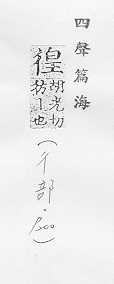 四聲篇海
徨
胡光切
彷丨也
(彳部·